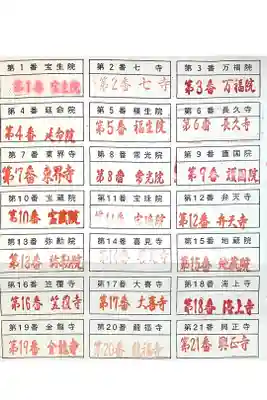 第1番 宝生院
第2番 七寺
第3番 万福院
第1番 宝生院
第2番 七寺
第3番 万福院
第4番 延命院
第5番 福生院
第6番 長久寺
第4番 延命院
第5番 福生院
第6番 長久寺
第7番 東界寺
第8番 常光院
第9番 護国院
第7番 東界寺
第8番 常光院
第9番 護国院
第10番 宝蔵院
第11番 宝珠院
第12番 弁天寺
第10番 宝蔵院
第11番 宝珠院
第12番 弁天寺
第13番 弥勒院
第14番 喜見寺
第15番 地蔵院
第13番 弥勒院
第15番 地蔵院
第16番 笠覆寺
第17番 大喜寺
第18番 海上寺
第16番 笠覆寺
第17番 大喜寺
第18番 海上寺
第19番 金龍寺
第20番 龍福寺
第21番 興正寺
第19番 金龍寺
第20番 龍福寺
第21番 興正寺